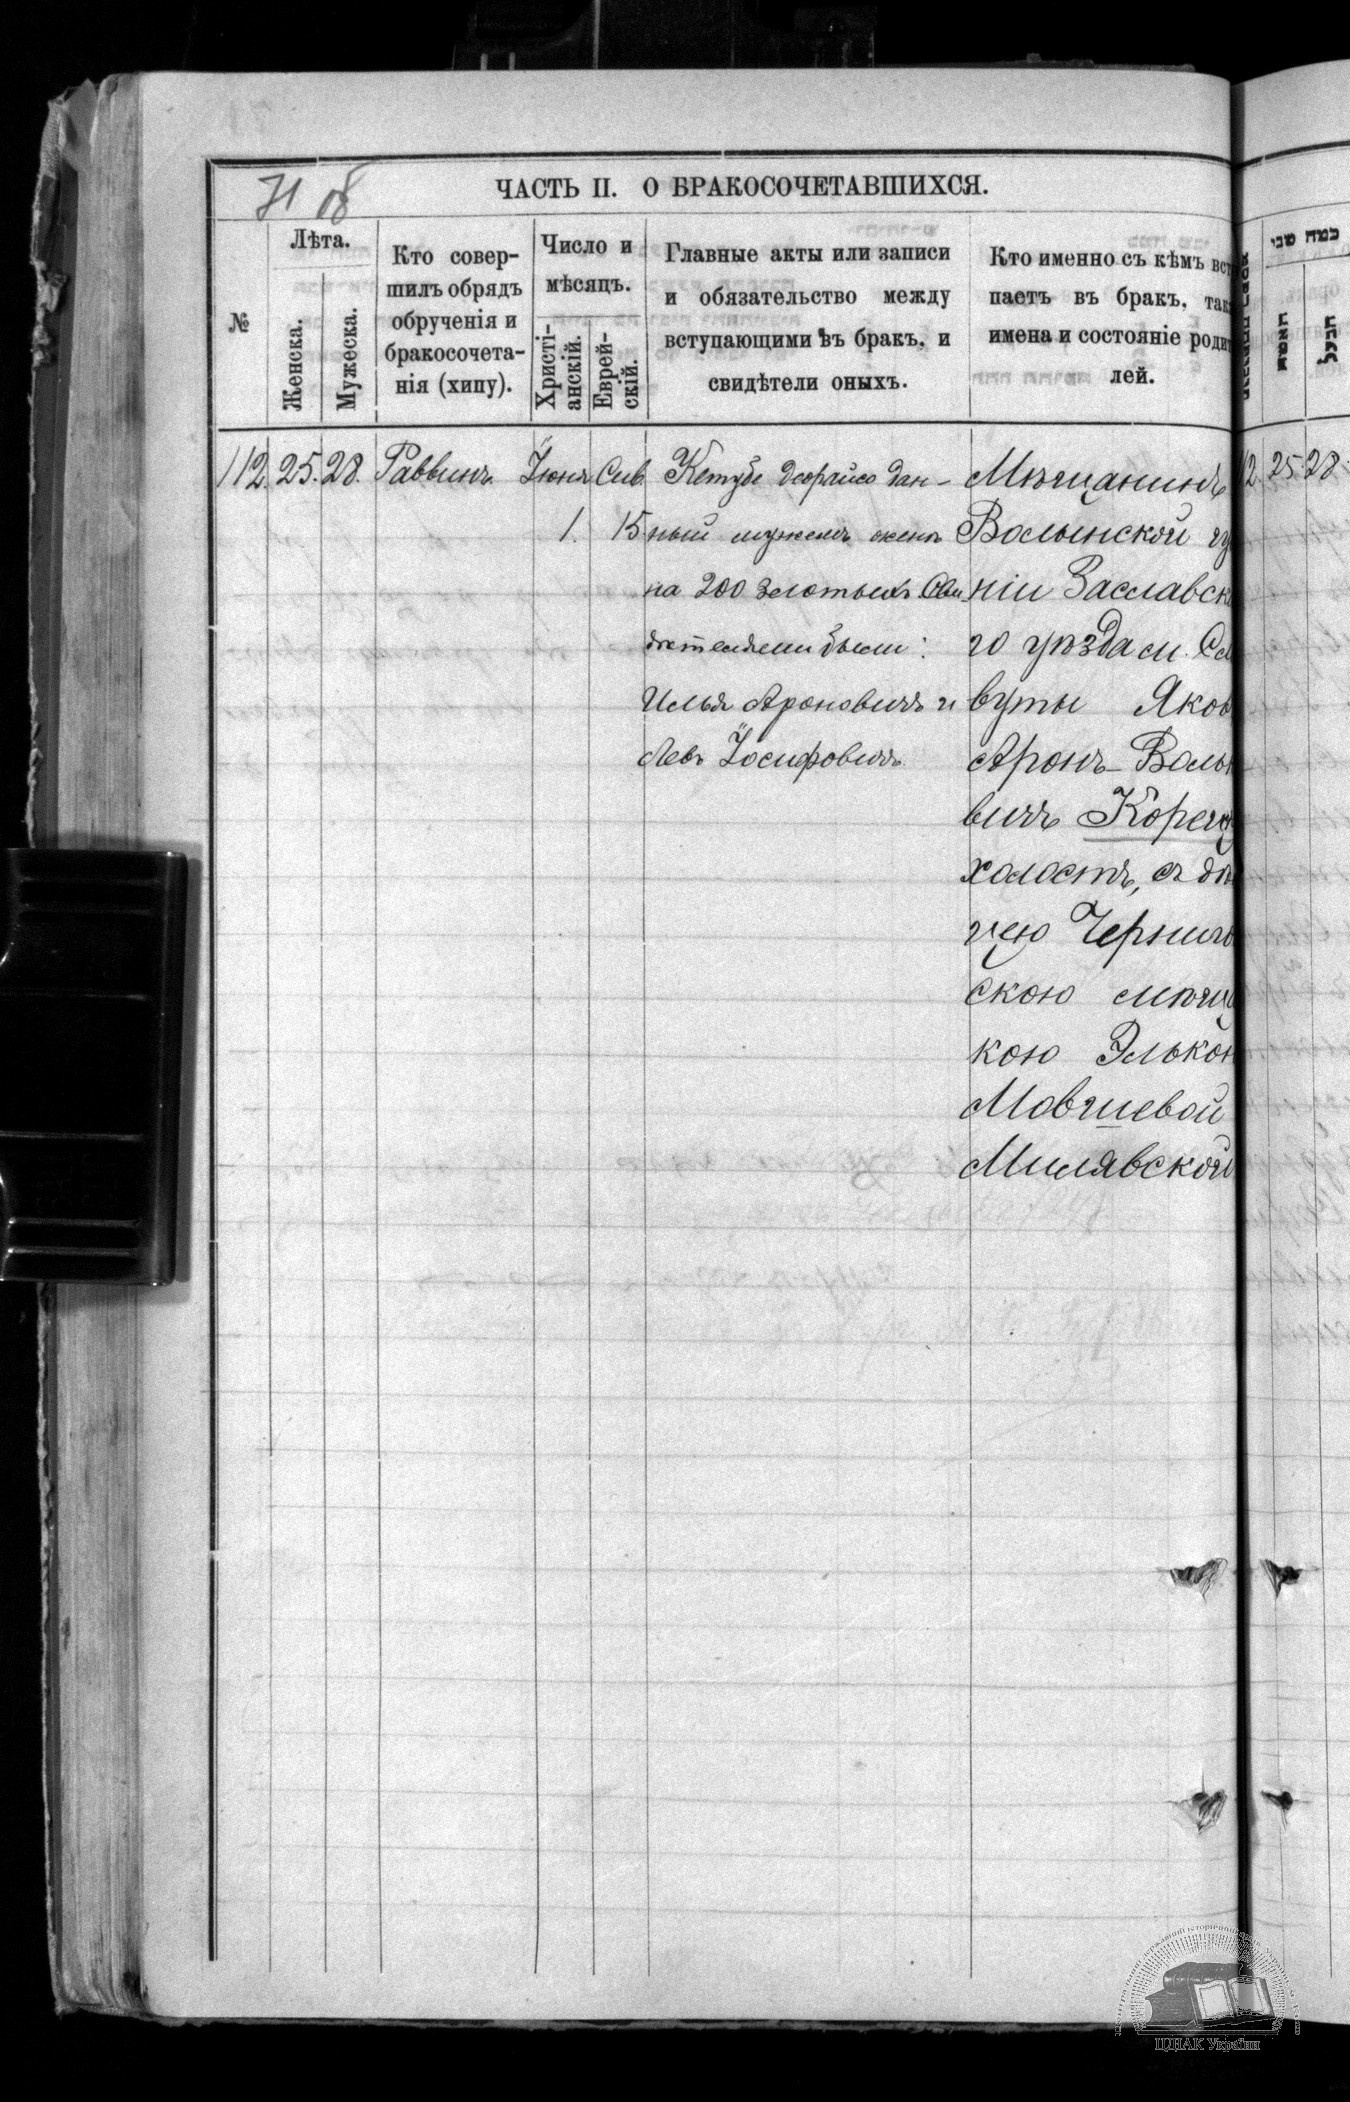 71 об
ЧАСТЬ II. О БРАКОСОЧЕТАВШИХСЯ.
№
Лѣта.
Женска.
Мужеска.
Кто совер-
шилъ обрядъ
обрученія и
бракосочета-
нія (хипу).
Число и
мѣсяцъ.
Христі-
анскій.
Еврей-
скій.
Главные акты или записи
и обязательство между
вступающими въ бракъ, и
свидѣтели оныхъ.
Кто именно съ кѣмъ вст
паетъ въ бракъ, так
имена и состояніе роди
лей.
כמה שני
האשה
הבעל
112. 25. 28. Раввинъ Іюня Сив.
1. 15
Кетубе деорайсо дан-
ный мужемъ женѣ
на 200 злотыхъ. Сви
дѣтелями были:
Илья Ароновичъ и
Левъ Іосифовичъ
Мѣщанинъ
Волынской гу
ніи Заславск
го уѣзда м. Сла
вуты Яков
Аронъ Вольк
вичъ Корец
холостъ, съ дѣ
цею Чернигов
скою мѣщ
кою Элькон
Мовшевой
Милявской
2. 25. 28.
ЦДІАК України